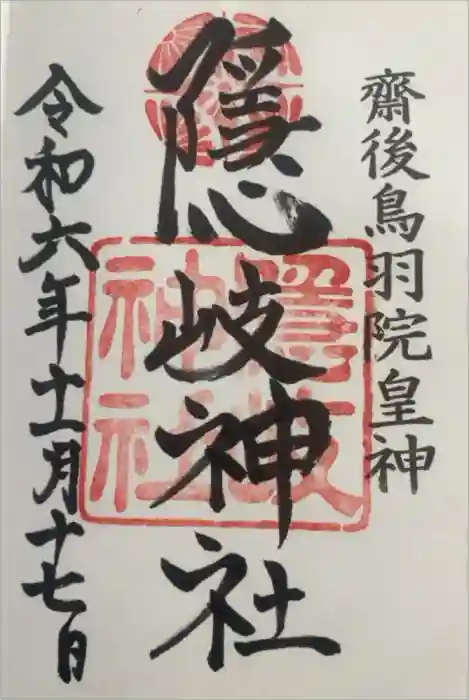 齋後鳥羽院皇神
隠岐神社
令和六年十一月十七日
隠岐
神社